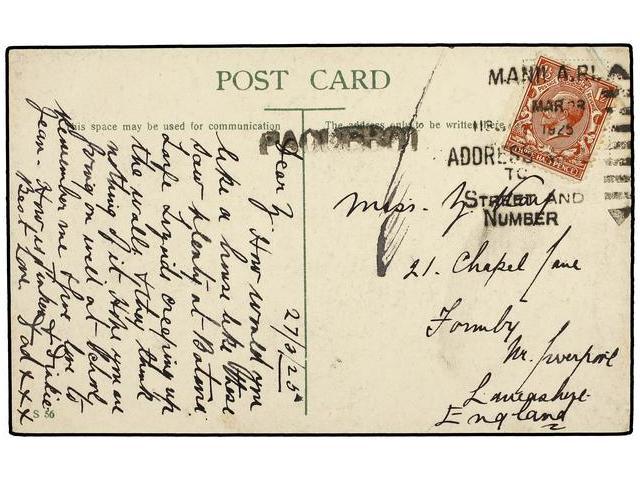 POST CARD
This space may be used for communication
The address only to be written here
PAQUEBOT
MANILA. P.I.
MAR
1925
ADDRESS
TO
STREET AND
NUMBER
THREE HALFPENCE
27/2/25
Dear Z. How would you
like a house like these
Saw plenty at Batavia
Large Lizards creeping up
the walls & they think
nothing of it Hope you are
going on well at School
Remember me & give love to
Jean. How is Mother &
Best Love Dad xxx
Miss. Z.
21. Chapel Lane
Formby
Nr. Liverpool
Lancashire
England
S 56